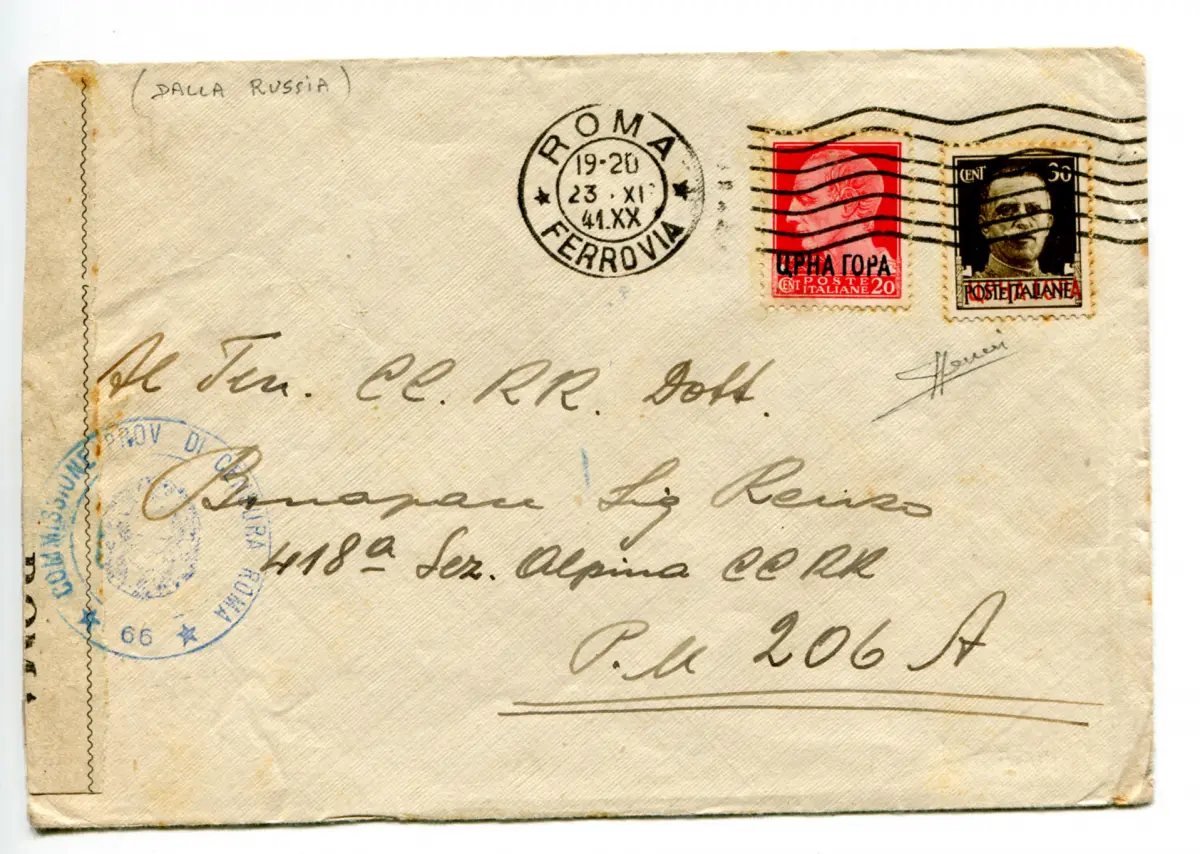 (DALLA RUSSIA)
ROMA
19-20
23 · XI
41.XX
FERROVIA
ЦРНА ГОРА
CENT POSTE ITALIANE 20
CENT 30
POSTE ITALIANE
Al Ten. CC. RR. Dott.
Sig Renzo
418a Sez. Alpina CC RR
P. M 206 A
COMMISSIONE PROV DI CENSURA ROMA
66